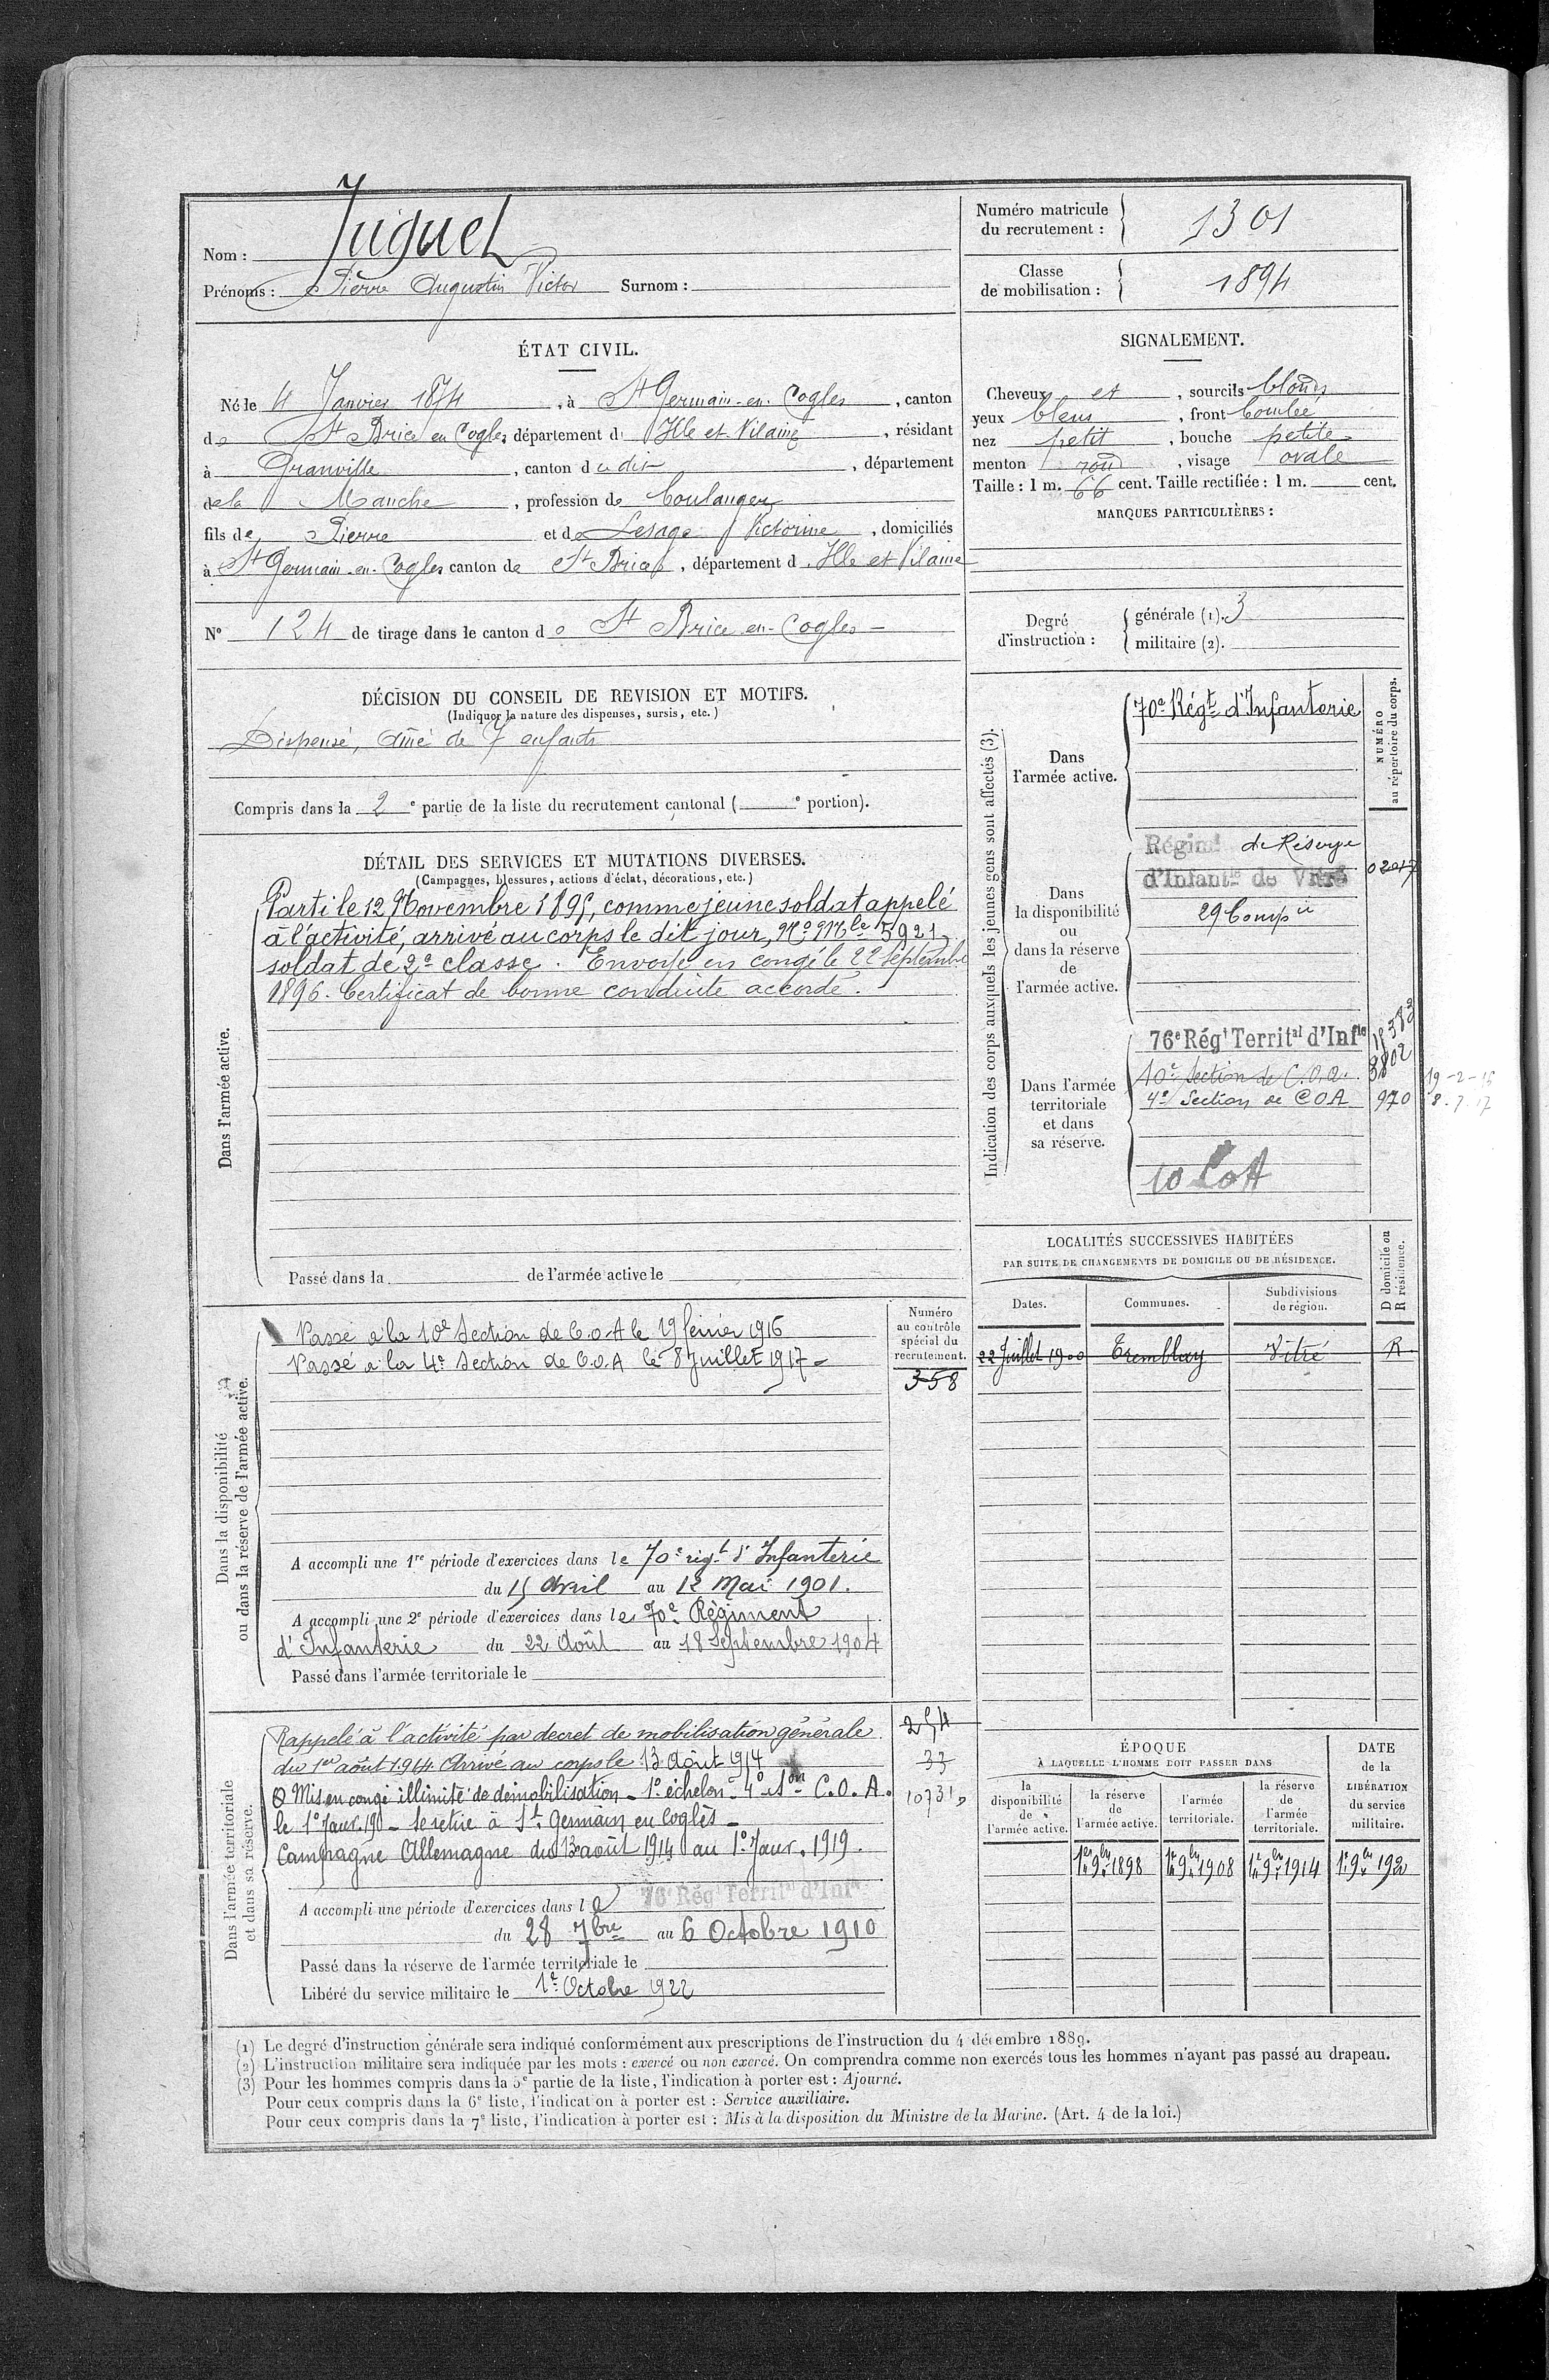 Nom : Juguel
Prénoms : Pierre Augustin Victor Surnom :
Numéro matricule du recrutement : 1301
Classe de mobilisation : 1894
ÉTAT CIVIL.
Né le 4 Janvier 1874, à St Germain-en-Cogles, canton
de St Brice en Cogles département d'Ille et Vilaine, résidant
à Granville, canton du dit, département
de la Manche, profession de boulanger
fils de Pierre et de Lesage Victorine, domiciliés
à St Germain-en-Cogles canton de St Brice, département d Ille et Vilaine
N° 124 de tirage dans le canton de St Brice-en-Cogles
SIGNALEMENT.
Cheveux et, sourcils blonds
yeux bleus, front bombé
nez petit, bouche petite
menton rond, visage ovale
Taille : 1 m. 66 cent. Taille rectifiée : 1 m. cent.
MARQUES PARTICULIÈRES :
Degré d'instruction : générale (1). 3
militaire (2).
DÉCISION DU CONSEIL DE REVISION ET MOTIFS.
(Indiquer la nature des dispenses, sursis, etc.)
Dispensé, aîné de 7 enfants
Compris dans la 2e partie de la liste du recrutement cantonal ( e portion).
DÉTAIL DES SERVICES ET MUTATIONS DIVERSES.
(Campagnes, blessures, actions d'éclat, décorations, etc.)
Dans l'armée active.
Parti le 12 Novembre 1895, comme jeune soldat appelé
à l'activité, arrivé au corps le dit jour, No Mle 5921
soldat de 2e classe. Envoyé en congé le 22 Septembre
1896. Certificat de bonne conduite accordé.
Passé dans la de l'armée active le
Indication des corps auxquels les jeunes gens sont affectés (3).
NUMÉRO au répertoire du corps.
Dans l'armée active.
70e Régt d'Infanterie
Dans la disponibilité ou dans la réserve de l'armée active.
Régimt de Réserve
d'Infantie de Vitré
29 Compie
Dans l'armée territoriale et dans sa réserve.
76e Régt Territal d'Infie
10e Section de C.O.A. 8802
4e Section de COA 970
10 COA
LOCALITÉS SUCCESSIVES HABITÉES
PAR SUITE DE CHANGEMENTS DE DOMICILE OU DE RÉSIDENCE.
Dates. Communes. Subdivisions de région. D domicile ou R résidence.
22 Juillet 1900 Tremblay Vitré R.
Dans la disponibilité ou dans la réserve de l'armée active.
Numéro au contrôle spécial du recrutement.
358
Passé à la 10e Section de C.O.A le 19 février 1916
Passé à la 4e Section de C.O.A le 8 Juillet 1917
A accompli une 1re période d'exercices dans le 70e régt d'Infanterie
du 15 Avril au 12 Mai 1901.
A accompli une 2e période d'exercices dans le 70e Régiment
d'Infanterie du 22 Août au 18 Septembre 1904
Passé dans l'armée territoriale le
Dans l'armée territoriale et dans sa réserve.
254
33
10731
Rappelé à l'activité par decret de mobilisation générale
du 1er août 1914. Arrivé au corps le 13 Août 1914
Mis en congé illimité de démobilisation - 1e échelon - 4e Son C.O.A.
le 1e Janv. 190 - se retire à St Germain en Coglès -
Campagne Allemagne du 13 août 1914 au 1e Janv. 1919.
A accompli une période d'exercices dans le 76e Régt Territal d'Infie
du 28 7bre au 6 Octobre 1910
Passé dans la réserve de l'armée territoriale le
Libéré du service militaire le 1e Octobre 1922
ÉPOQUE
À LAQUELLE L'HOMME DOIT PASSER DANS
la disponibilité de l'armée active. la réserve de l'armée active. l'armée territoriale. la réserve de l'armée territoriale.
DATE de la LIBÉRATION du service militaire.
1er 9bre 1898 1er 9bre 1908 1er 9bre 1914 1e 9bre 192
(1) Le degré d'instruction générale sera indiqué conformément aux prescriptions de l'instruction du 4 décembre 1889.
(2) L'instruction militaire sera indiquée par les mots : exercé ou non exercé. On comprendra comme non exercés tous les hommes n'ayant pas passé au drapeau.
(3) Pour les hommes compris dans la 5e partie de la liste, l'indication à porter est : Ajourné.
Pour ceux compris dans la 6e liste, l'indication à porter est : Service auxiliaire.
Pour ceux compris dans la 7e liste, l'indication à porter est : Mis à la disposition du Ministre de la Marine. (Art. 4 de la loi.)